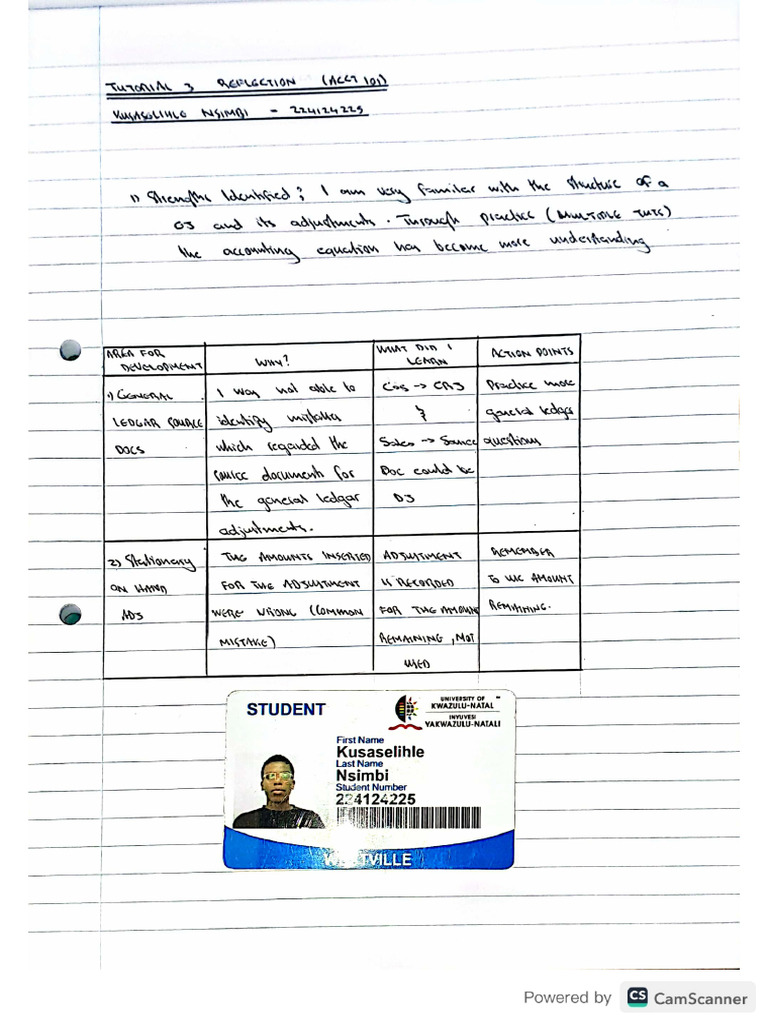 TUTORIAL 3 REFLECTION (ACCT 101)
KUSASELIHLE NSIMBI - 224124225
1) Strengths Identified: I am very familiar with the structure of a
GJ and its adjustments. Through practice (MULTIPLE TUTS)
the accounting equation has become more understanding
AREA FOR DEVELOPMENT
WHY?
WHAT DID I LEARN
ACTION POINTS
1) GENERAL
LEDGAR SOURCE
DOCS
I was not able to
identify mistakes
which regarded the
source documents for
the general ledgar
adjustments.
COS → CRJ
&
Sales → Source
Doc could be
DJ
Practice more
general ledger
questions
2) Stationary
ON HAND
ADJ
THE AMOUNTS INSERTED
FOR THE ADJUSTMENT
WERE WRONG (COMMON
MISTAKE)
ADJUSTMENT
IS RECORDED
FOR THE AMOUNT
REMAINING, NOT
USED
REMEMBER
TO USE AMOUNT
REMAINING.
STUDENT
UNIVERSITY OF
KWAZULU-NATAL
INYUVESI
YAKWAZULU-NATALI
First Name
Kusaselihle
Last Name
Nsimbi
Student Number
224124225
Powered by CS CamScanner